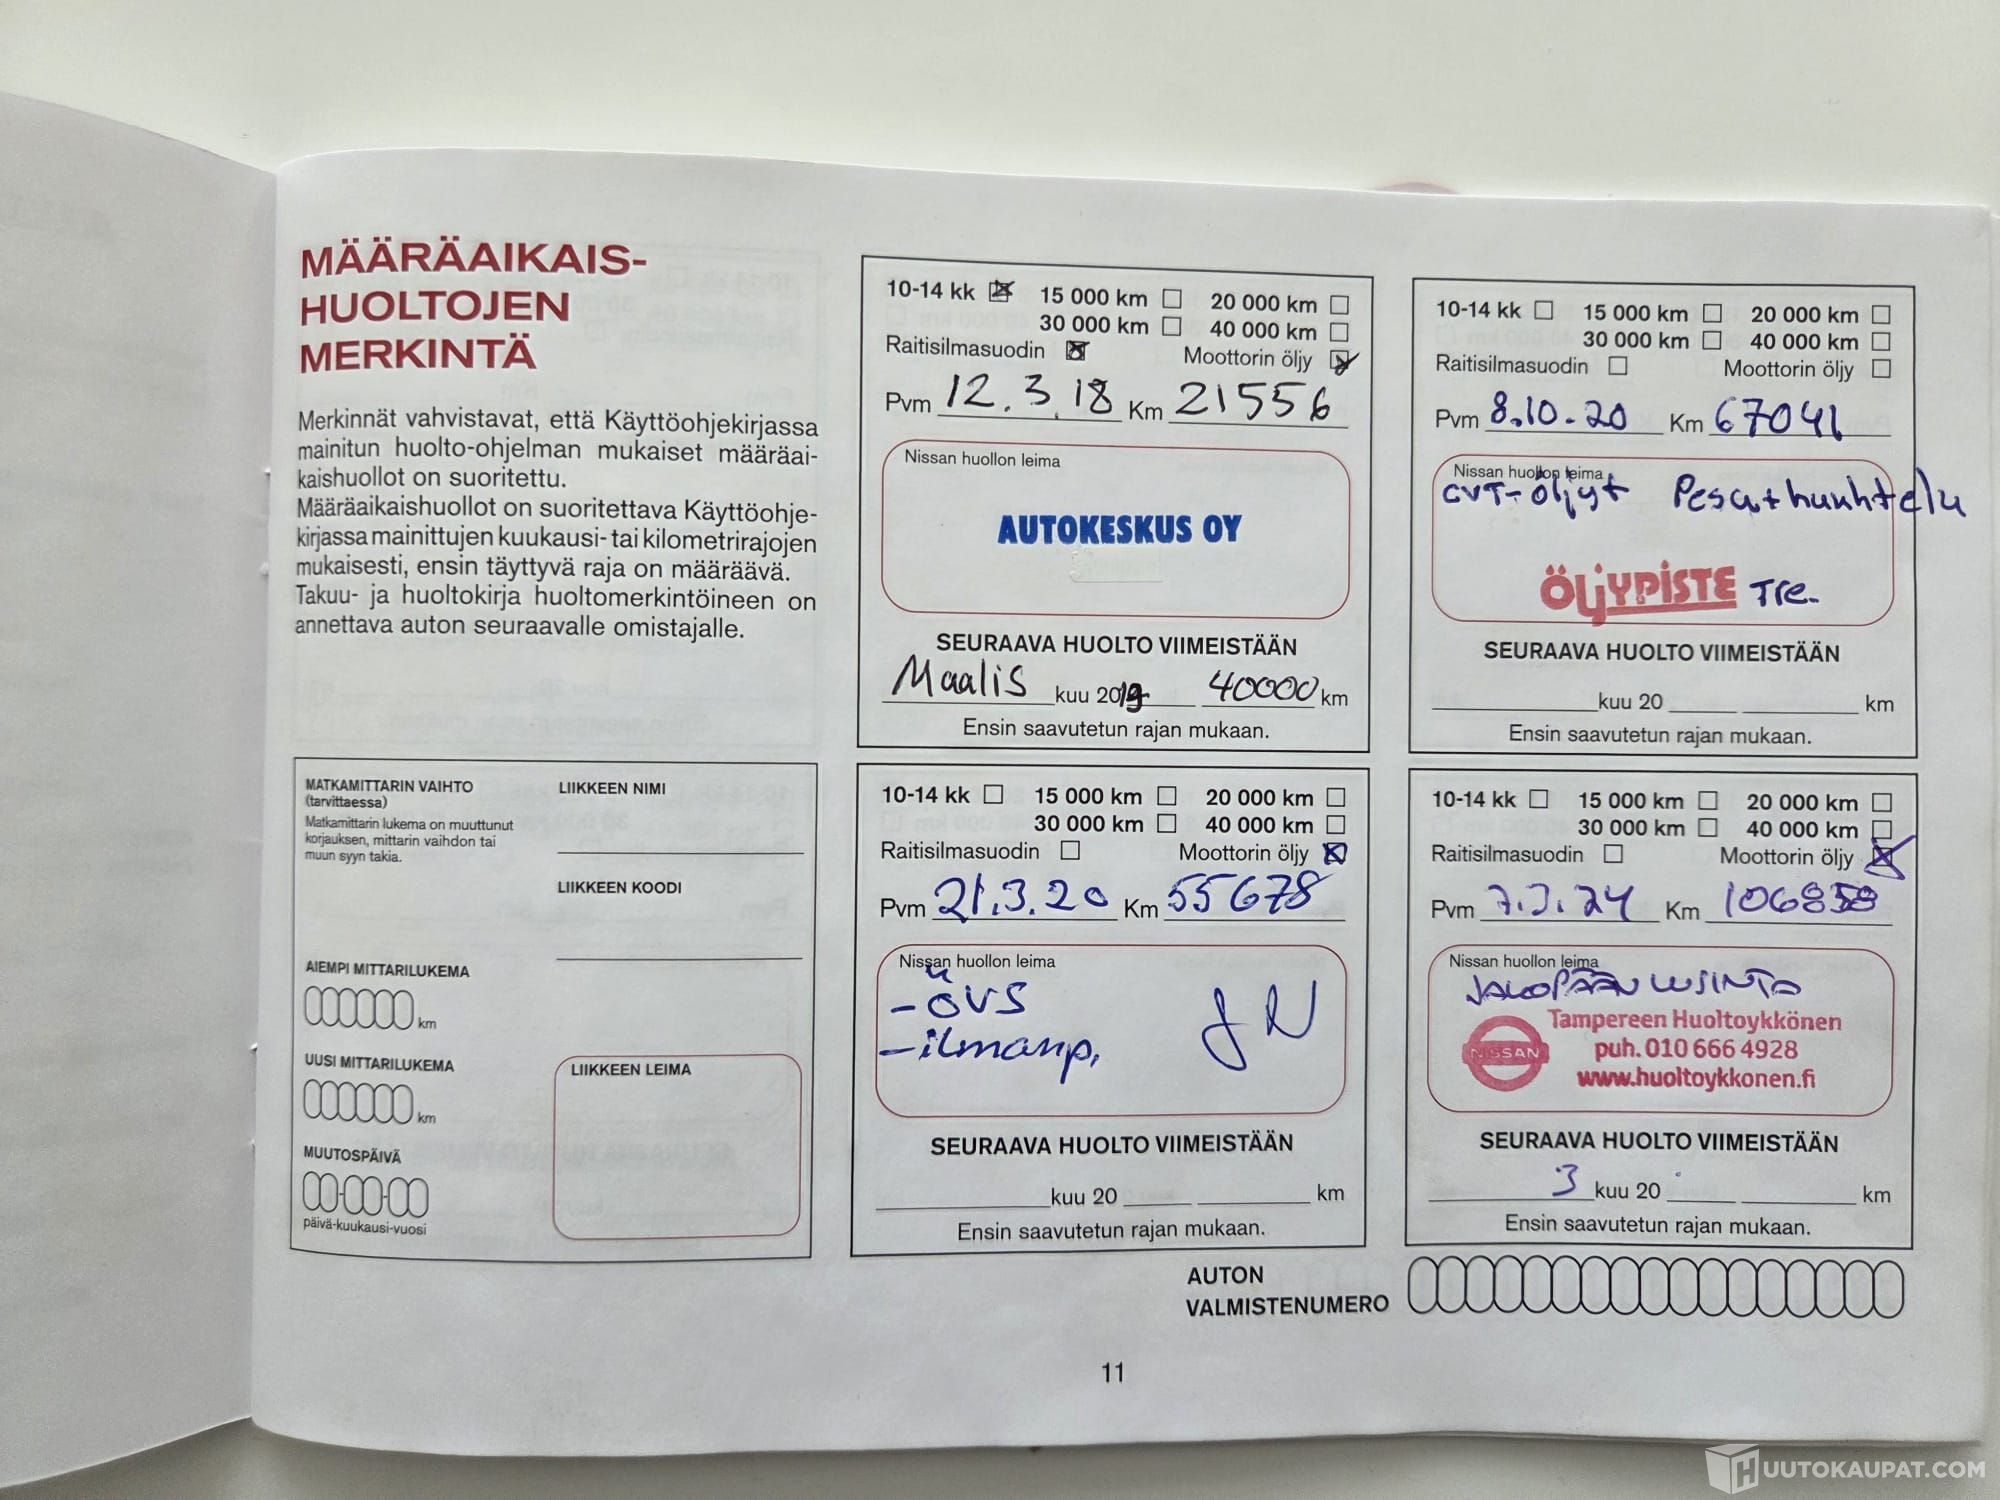 MÄÄRÄAIKAIS-
HUOLTOJEN
MERKINTÄ
Merkinnät vahvistavat, että Käyttöohjekirjassa
mainitun huolto-ohjelman mukaiset määräai-
kaishuollot on suoritettu.
Määräaikaishuollot on suoritettava Käyttöohje-
kirjassa mainittujen kuukausi- tai kilometrirajojen
mukaisesti, ensin täyttyvä raja on määräävä.
Takuu- ja huoltokirja huoltomerkintöineen on
annettava auton seuraavalle omistajalle.
MATKAMITTARIN VAIHTO
(tarvittaessa)
Matkamittarin lukema on muuttunut
korjauksen, mittarin vaihdon tai
muun syyn takia.
LIIKKEEN NIMI
LIIKKEEN KOODI
AIEMPI MITTARILUKEMA
km
UUSI MITTARILUKEMA
km
MUUTOSPÄIVÄ
päivä-kuukausi-vuosi
LIIKKEEN LEIMA
10-14 kk 15 000 km 20 000 km
30 000 km 40 000 km
Raitisilmasuodin Moottorin öljy
Pvm 12.3.18 Km 21556
Nissan huollon leima
AUTOKESKUS OY
SEURAAVA HUOLTO VIIMEISTÄÄN
Maalis kuu 2019 40000 km
Ensin saavutetun rajan mukaan.
10-14 kk 15 000 km 20 000 km
30 000 km 40 000 km
Raitisilmasuodin Moottorin öljy
Pvm 8.10.20 Km 67041
Nissan huollon leima
CVT-öljyt Pesu+huuhtelu
ÖLJYPISTE Tre.
SEURAAVA HUOLTO VIIMEISTÄÄN
kuu 20 km
Ensin saavutetun rajan mukaan.
10-14 kk 15 000 km 20 000 km
30 000 km 40 000 km
Raitisilmasuodin Moottorin öljy
Pvm 21.3.20 Km 55678
Nissan huollon leima
- öVS
- ilmanp. JN
SEURAAVA HUOLTO VIIMEISTÄÄN
kuu 20 km
Ensin saavutetun rajan mukaan.
10-14 kk 15 000 km 20 000 km
30 000 km 40 000 km
Raitisilmasuodin Moottorin öljy
Pvm 7.3.24 Km 106858
Nissan huollon leima
JAKOPÄÄN UUSINTA
NISSAN
Tampereen Huoltoykkönen
puh. 010 666 4928
www.huoltoykkonen.fi
SEURAAVA HUOLTO VIIMEISTÄÄN
3 kuu 20 km
Ensin saavutetun rajan mukaan.
AUTON
VALMISTENUMERO
11
HUUTOKAUPAT.COM